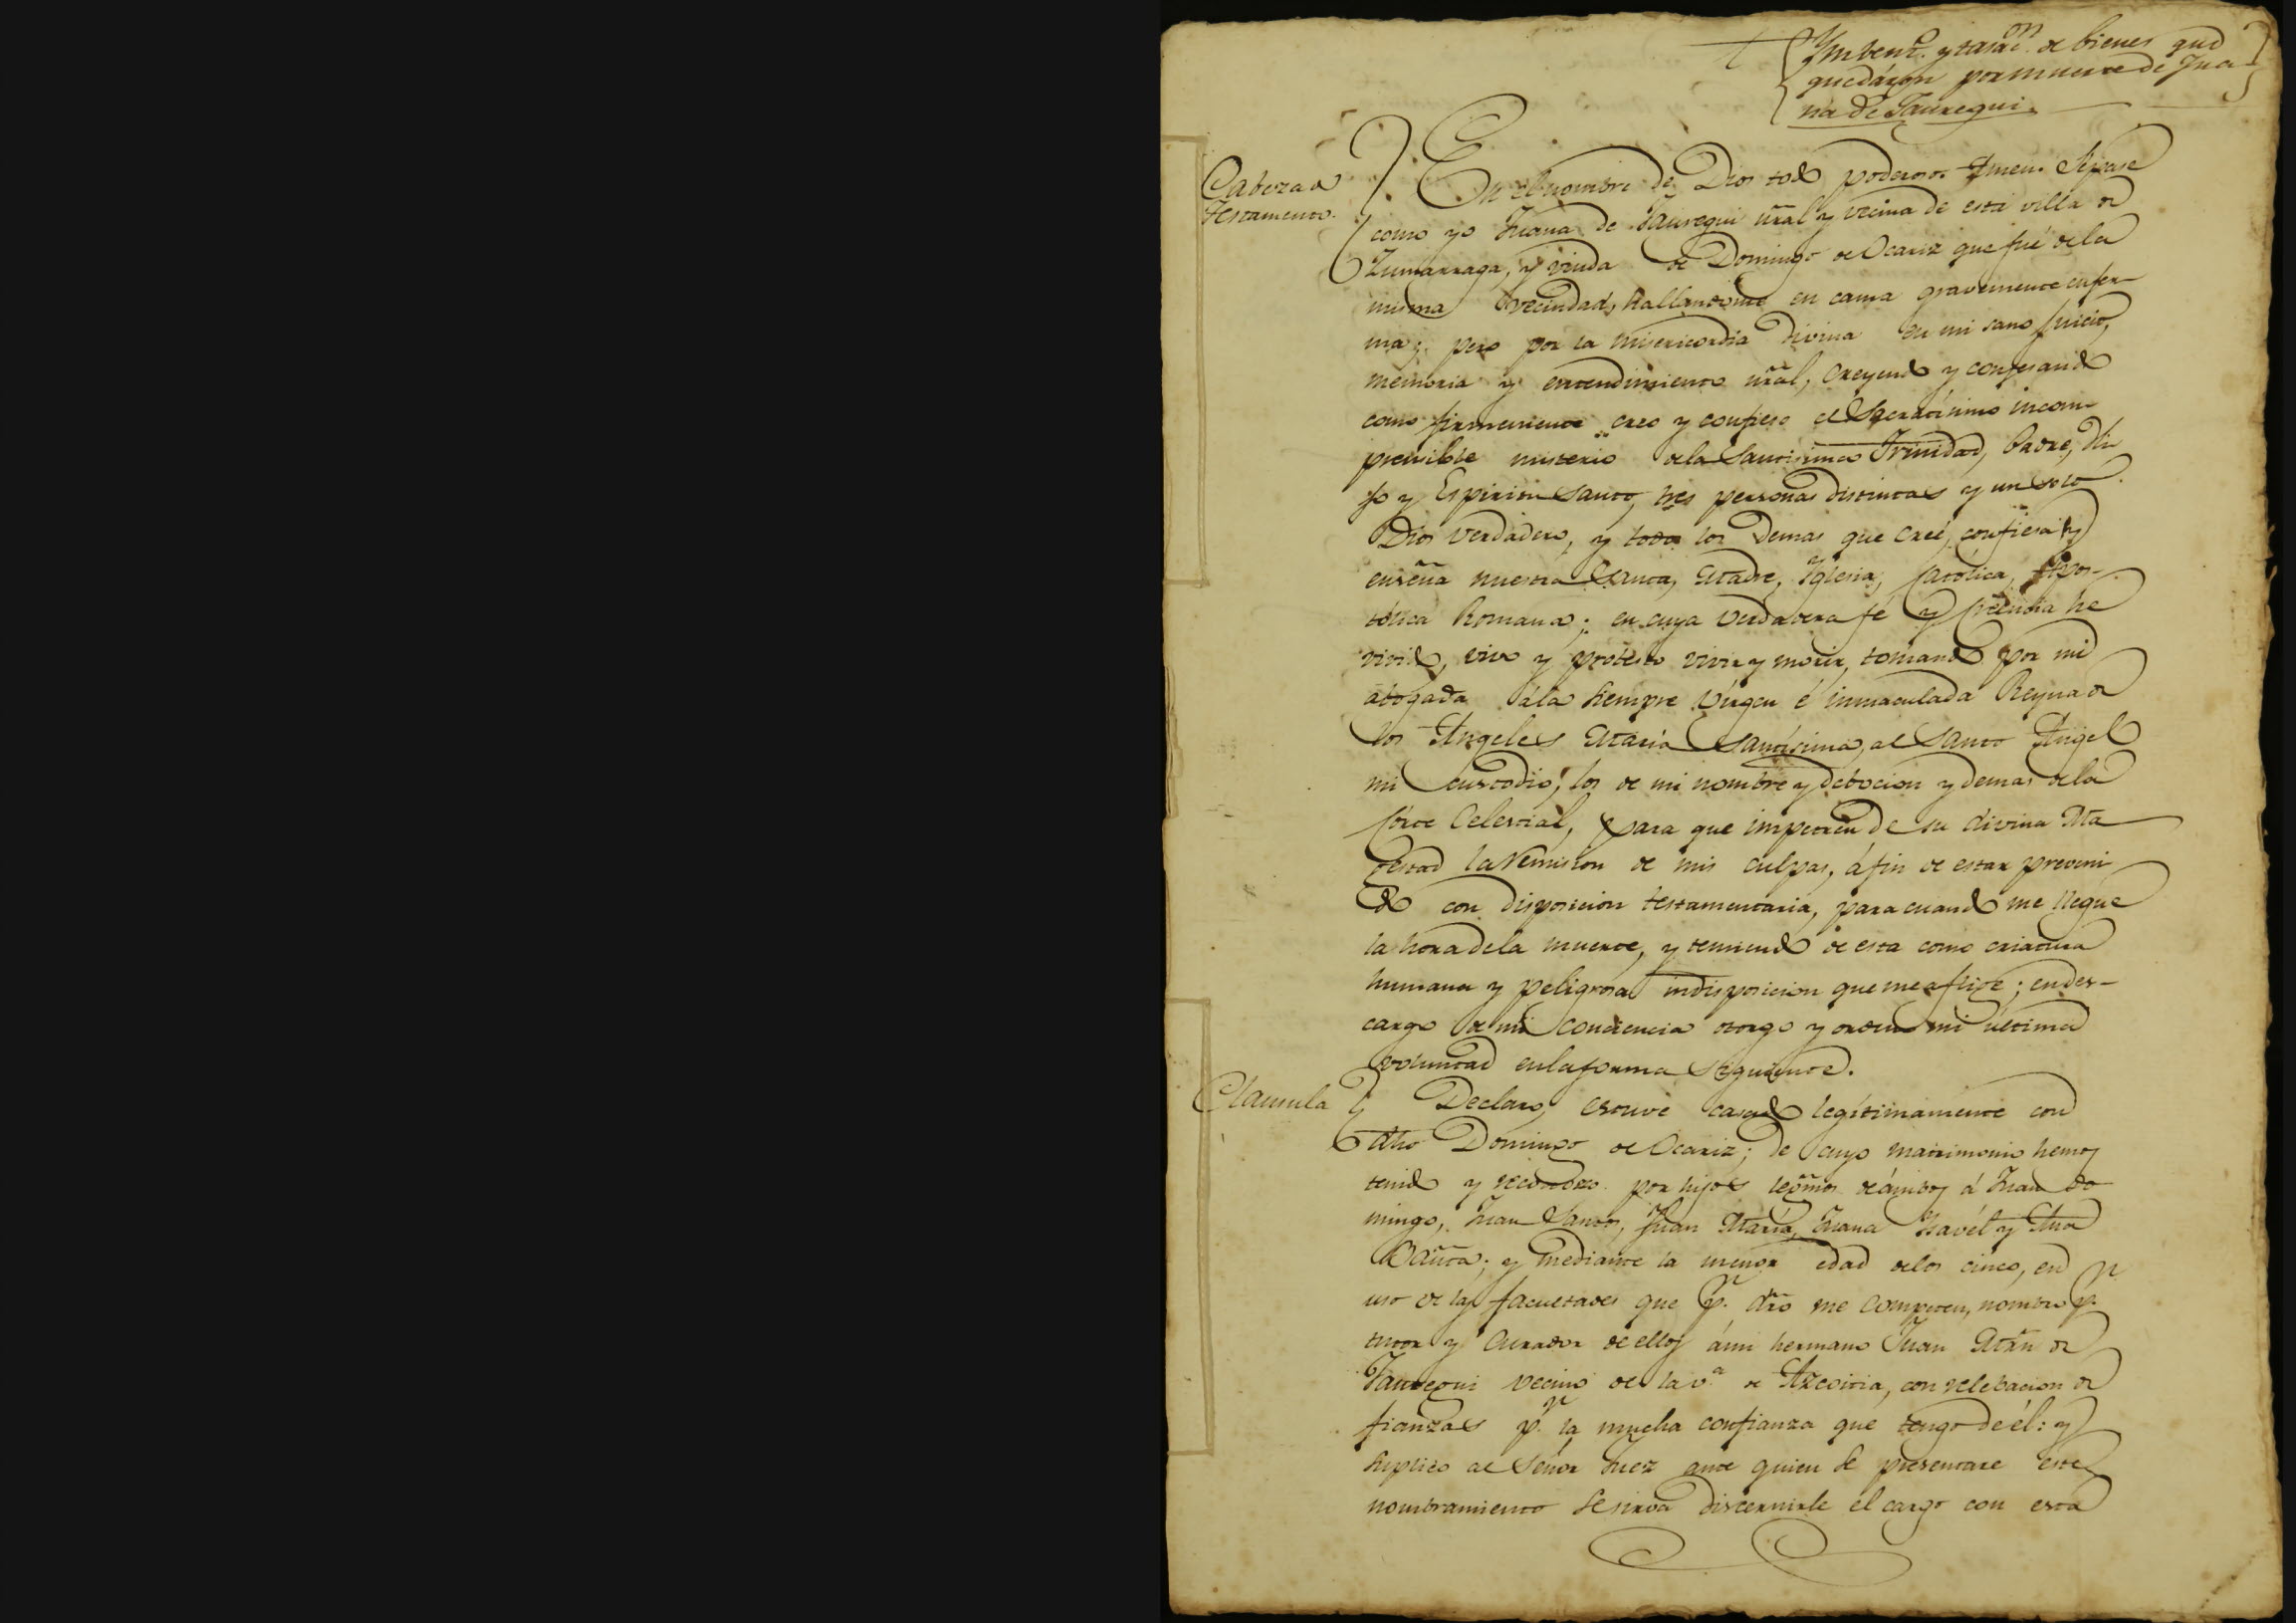 Ymbentº. y tasacⁿ. de bienes que
quedáron por muerte de Jua
na de Jauregui.
Cabeza de
testamento.
En el nombre de Dios todo poderoso. Amen. Sepase
como yo Juana de Jauregui nr̃al y vecina de esta villa de
Zumarraga, y viuda de Domingo de Ocariz que fué de la
misma vecindad, hallandome en cama gravemente enfer-
ma; pero por la misericordia divina en mi sano juicio,
memoria y entendimiento nr̃al, creyendo y confesando
como firmemente creo y confieso el Sacratísimo incom-
prensible misterio de la Santisima Trinidad, Padre, Hi-
jo y Espiritu Santo, tres personas distintas y un solo
Dios verdadero, y todo los demas que creé, confiesa y
enseña nuestra Santa, Madre, Yglesia, Católica, Apos-
tólica Romana; en cuya verdadera fé y creencia he
vivido, vivo y protesto vivir y morir, tomando por mi
abogada á la siempre Vírgen é inmaculada Reyna de
los Angeles María Santísima, al Santo Angel
mi custodio, los de mi nombre y debocion y demas de la
Corte Celestial, para que impetren de su divina Ma
gestad la remision de mis culpas, á fin de estar preveni-
do con disposicion testamentaria, para cuando me llegue
la hora de la muerte, y temiendo de esta como criatura
humana y peligrosa indisposicion que me aflige; en des-
cargo de mi conciencia otorgo y ordeno mi última
voluntad en la forma siguiente.
Clausula
Declaro, estuve casado legítimamente con
dho Domingo de Ocariz; de cuyo matrimonio hemos
tenido y reconozco por hijos legmos. de ámbos á Juan Do
mingo, Juan Santos, Juan María, Juana Ysavél y Ana
Bauta; y mediante la menor edad de los cinco, en
uso de las facultades que pʳ. dro me competen, nombro pʳ.
tutor y Curador de ellos á mi hermano Juan Mrñ de
Jauregui vecino de la vª. de Azcoitia, con relebacion de
fianzas pʳ. la mucha confianza que tengo de él: y
suplico al Señor Juez ante quien se presentare este
nombramiento se sirva discernirle el cargo con esta